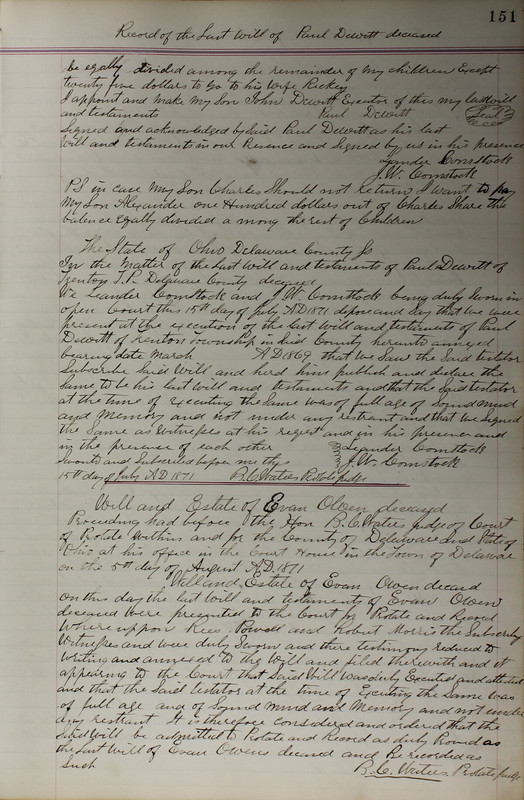 151
Record of the Last Will of Paul Dewitt deceased
be egally divided among the remainder of my children Except
twenty five dollars to go to his Wife Rickey
I appoint and make my Son John Dewitt Exector of this my last will
and testaments Paul Dewitt Seal
Signed and acknowledged by Said Paul Dewitt as his last
Will and testaments in our Presence and Signed by us in his presence
Leander Comstock
J. W. Comstock
PS in case my Son Charles Should not return I want to pay
my Son Alexander one Hundred dollars out of Charles Share the
balance egally divided a mong the rest of Children
The State of Ohio Delaware County Ss
In the matter of the Last Will and testaments of Paul Dewitt of
Trenton T.P. Delaware County deceased
We Leander Comstock and J. W. Comstock being duly Sworn in
open Court this 15th day of July AD 1871 depose and Say that we were
present at the execution of the last Will and testaments of Paul
Dewitt of Trenton township in Said County hereunto annexed
bearing date March AD 1869 that we Saw the Said testator
Subscribe Said Will and herd him publish and declare the
Same to be his last will and testaments and that the Said testator
at the time of executing the Same was of full age of Sound mind
and Memory and not under any restrant and that we Signed
the Same as Witnesses at his regest and in his presence and
in the presence of each other Leander Comstock
Sworn to and Subscribed before me this J. W. Comstock
15th day of July AD 1871 B. C. Waters Probate Judge
Will and Estate of Evan Owen deceased
Proceeding had before the Hon B. C. Waters judge of Court
of Probate Within and for the County of Delaware and State of
Ohio at his office in the Court House in the Town of Delaware
on the 5th day of August AD. 1871
Will and Estate of Evan Owen deceased
on this day the last Will and testaments of Evan Owen
deceased Were presented to the Court for Probate and Record
Where uppon Rees Powell and Robert Morris the Subscribing
Witnesses and were duly Sworn and there testimony reduced to
Writing and annexed to the Will and filed therewith and it
appearing to the Court that Said Will was duly Executed and attested
and that the Said testator at the time of Executing the Same was
of full age and of Sound mind and Memory and not under
any restrant It is therefore considered and ordered that the
Said Will be admitted to Probate and Record as duly Proved as
the Last Will of Evan Owens deceased and Be recorded as
Such B. C. Waters Probate Judge